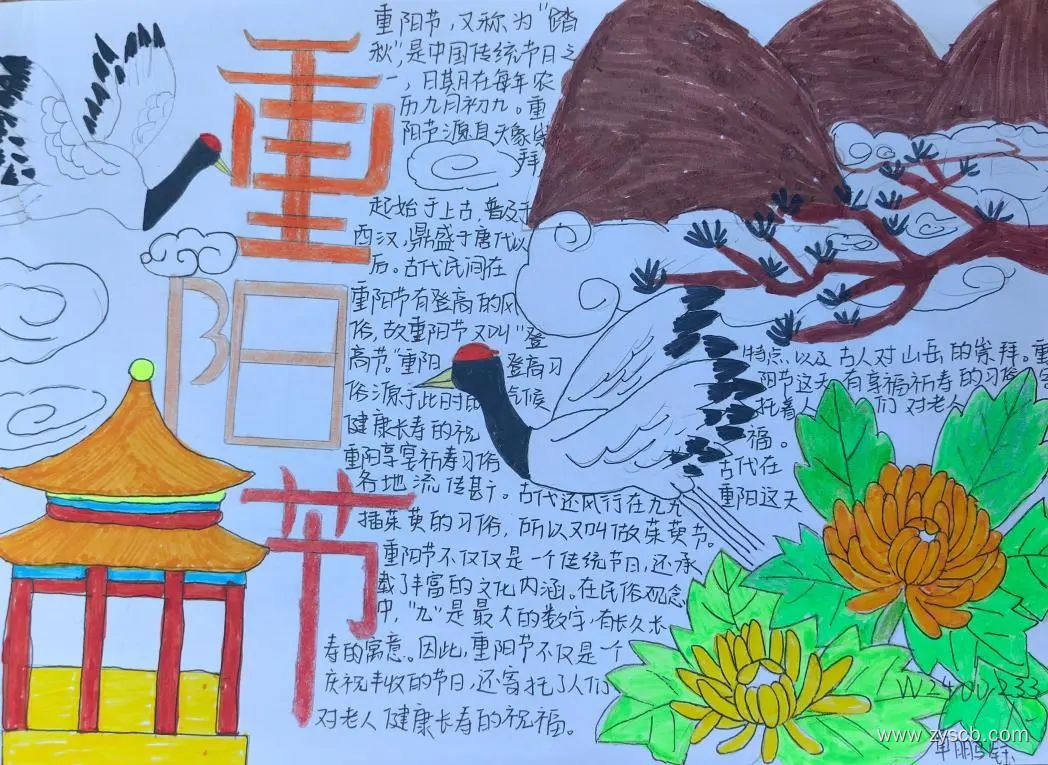 重阳节
重阳节，又称为“踏
秋”，是中国传统节日之
一，日期在每年农
历九月初九。重
阳节源自天象崇
拜
起始于上古，普及于
西汉，鼎盛于唐代以
后。古代民间在
重阳节有登高的风
俗，故重阳节又叫“登
高节。”重阳 登高习
俗源于此时的 气候
特点，以及古人对山岳的崇拜。重
阳节这天 有享福祈寿的习俗
托着人们 对老人
健康长寿的祝
福。
重阳享宴祈寿习俗
古代在
各地流传甚广。古代还风行在九九
重阳这天
插茱萸的习俗，所以又叫做茱萸节。
重阳节不仅仅是一个传统节日，还承
载了丰富的文化内涵。在民俗观念
中，“九”是最大的数字，有长久长
寿的寓意。因此，重阳节不仅是一个
庆祝丰收的节日，还寄托了人们
对老人健康长寿的祝福。
www.zyscb.com